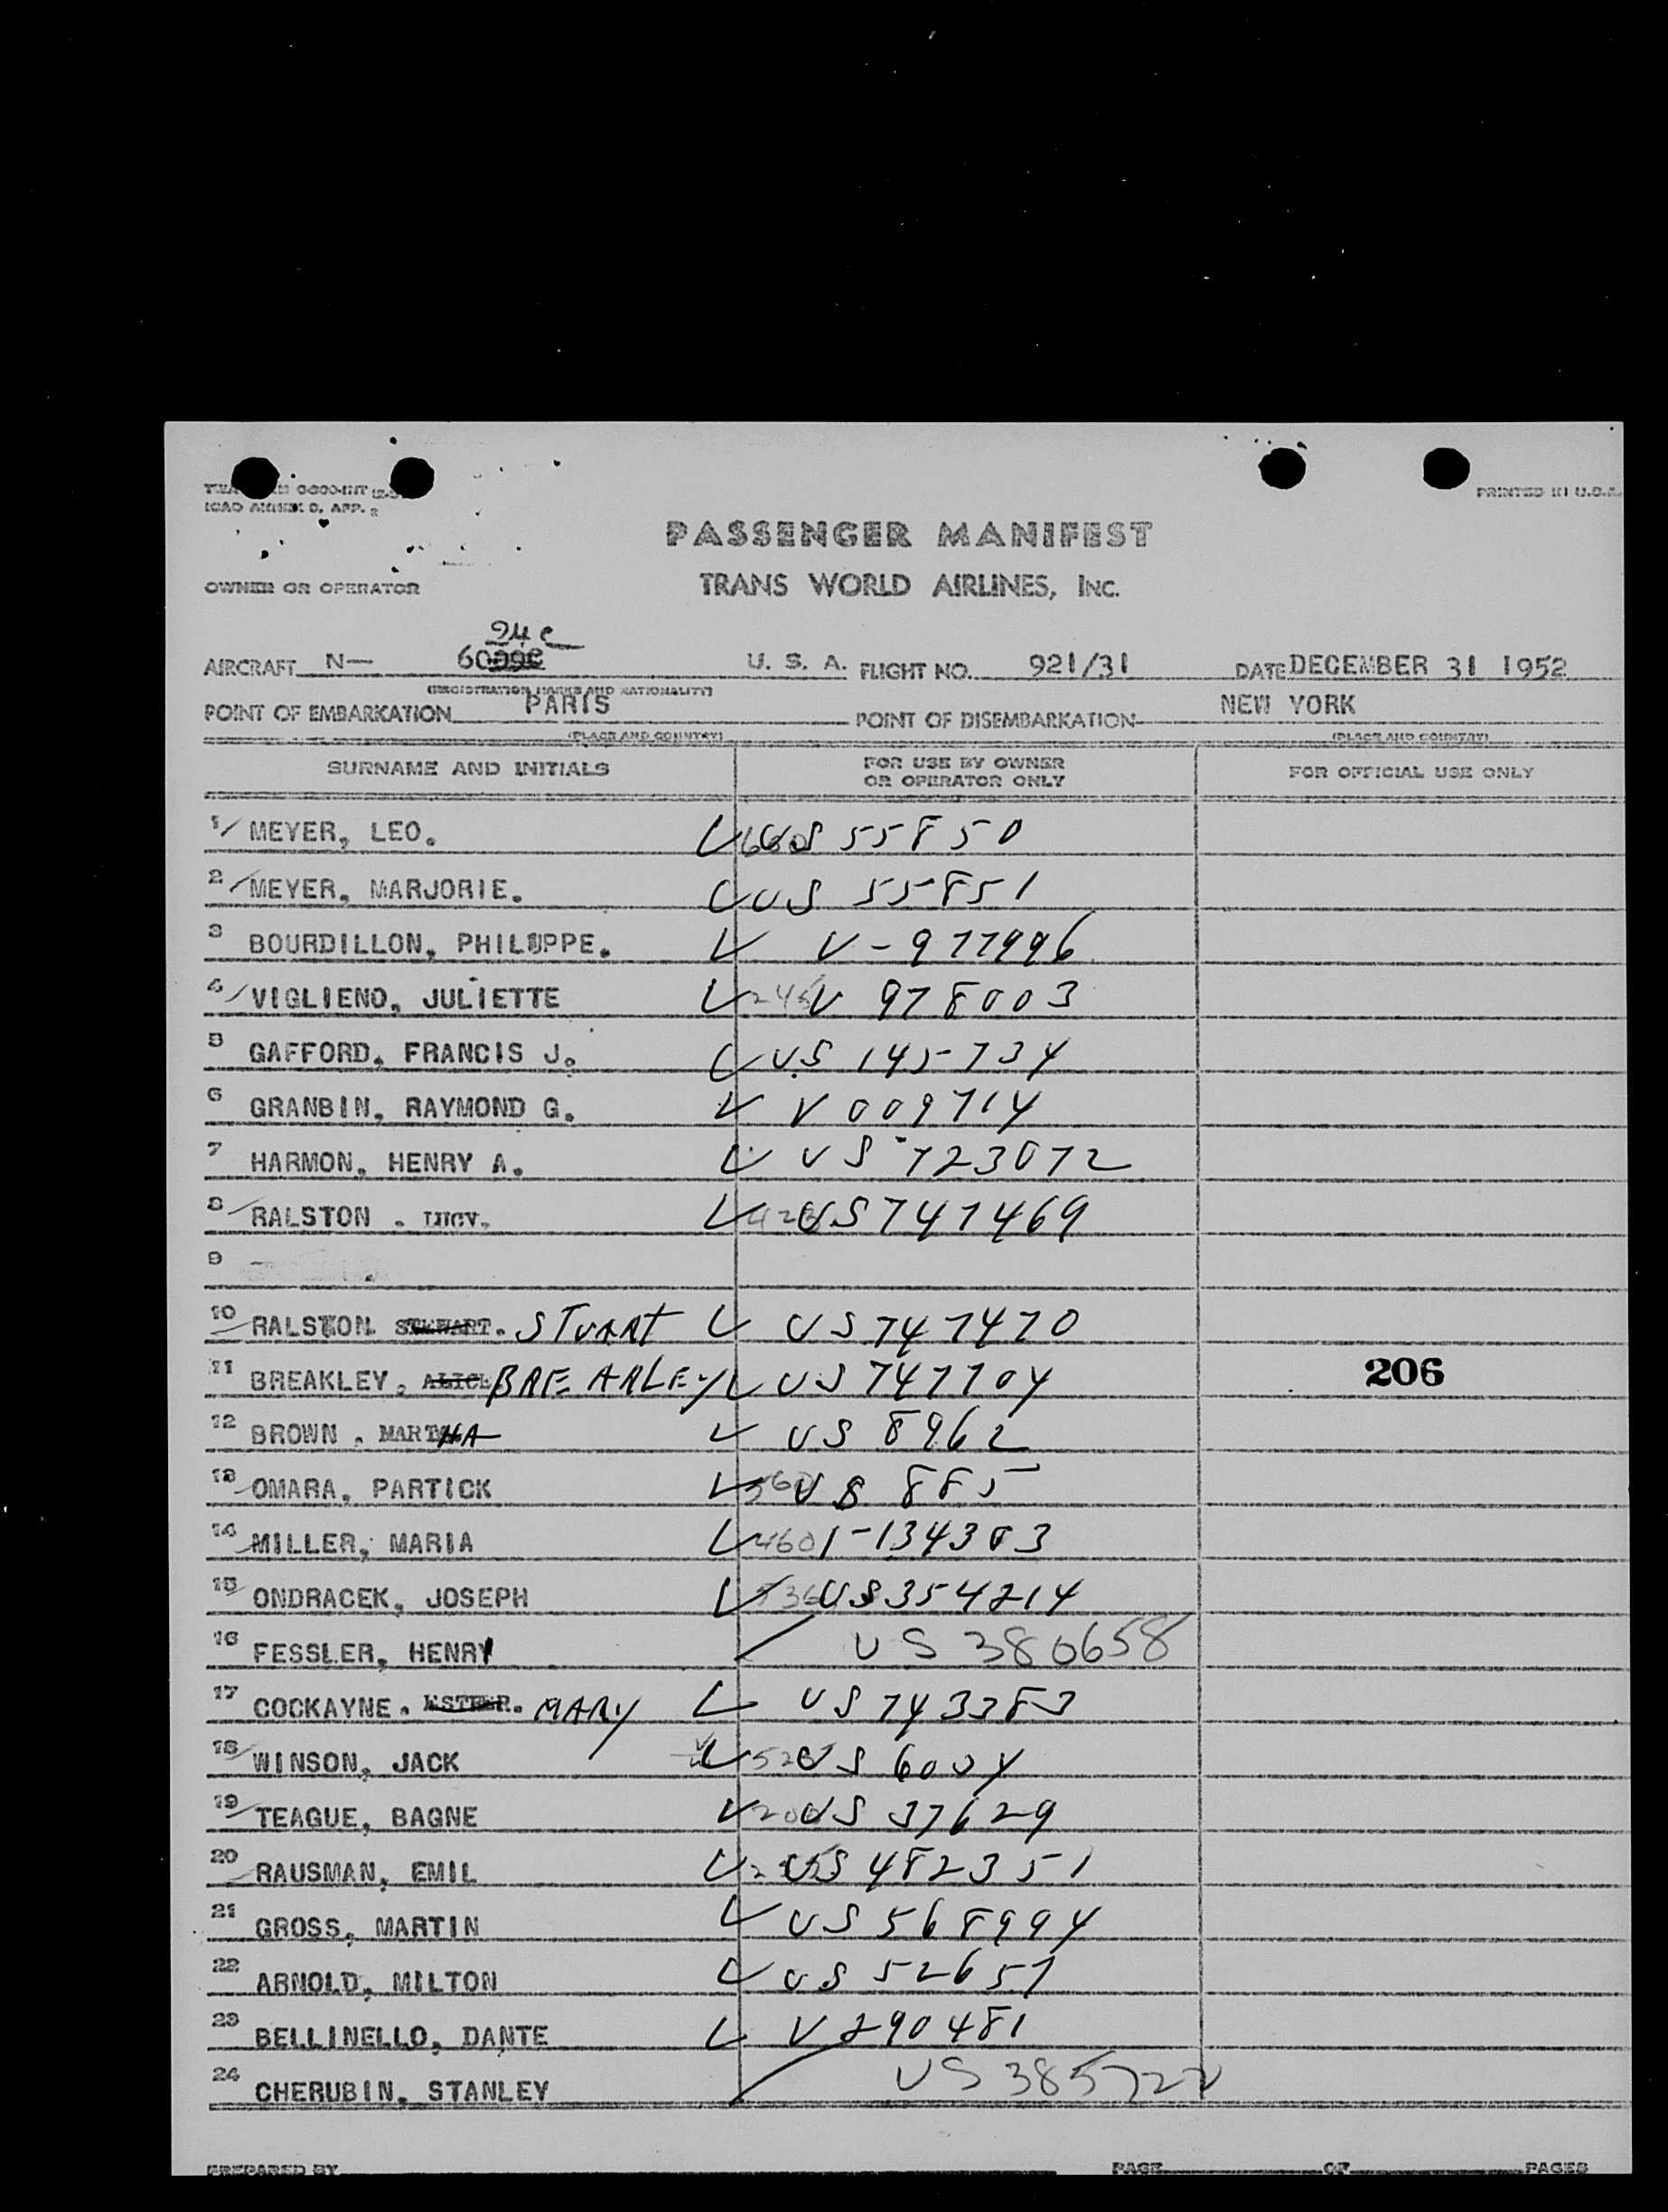 ICAO ANNEX 9, APP. 2
PRINTED IN U.S.A.
PASSENGER MANIFEST
OWNER OR OPERATOR TRANS WORLD AIRLINES, INC.
94c
AIRCRAFT N— 6009C U. S. A. FLIGHT NO. 921/31 DATE DECEMBER 31 1952
(REGISTRATION MARKS AND NATIONALITY)
POINT OF EMBARKATION PARIS POINT OF DISEMBARKATION NEW YORK
(PLACE AND COUNTRY) (PLACE AND COUNTRY)
SURNAME AND INITIALS FOR USE BY OWNER OR OPERATOR ONLY FOR OFFICIAL USE ONLY
1 MEYER, LEO. US 55850
2 MEYER, MARJORIE. US 55851
3 BOURDILLON, PHILIPPE. V-977996
4 VIGLIENO, JULIETTE V 978003
5 GAFFORD, FRANCIS J. US 145734
6 GRANBIN, RAYMOND G. V 009714
7 HARMON, HENRY A. US 723072
8 RALSTON . LUCY. US 747469
9
10 RALSTON STEWART. STUART US 747470
11 BREAKLEY, ALICE BREARLEY US 747704 206
12 BROWN . MARTHA US 8962
13 OMARA, PARTICK US 885
14 MILLER, MARIA 1-134303
15 ONDRACEK, JOSEPH US 354214
16 FESSLER, HENRY US 380658
17 COCKAYNE. ESTHER. MARY US 743383
18 WINSON, JACK US 6004
19 TEAGUE, BAGNE US 37629
20 RAUSMAN, EMIL US 482351
21 GROSS, MARTIN US 568994
22 ARNOLD, MILTON US 52657
23 BELLINELLO, DANTE V 290481
24 CHERUBIN, STANLEY US 385722
PREPARED BY PAGE OF PAGES